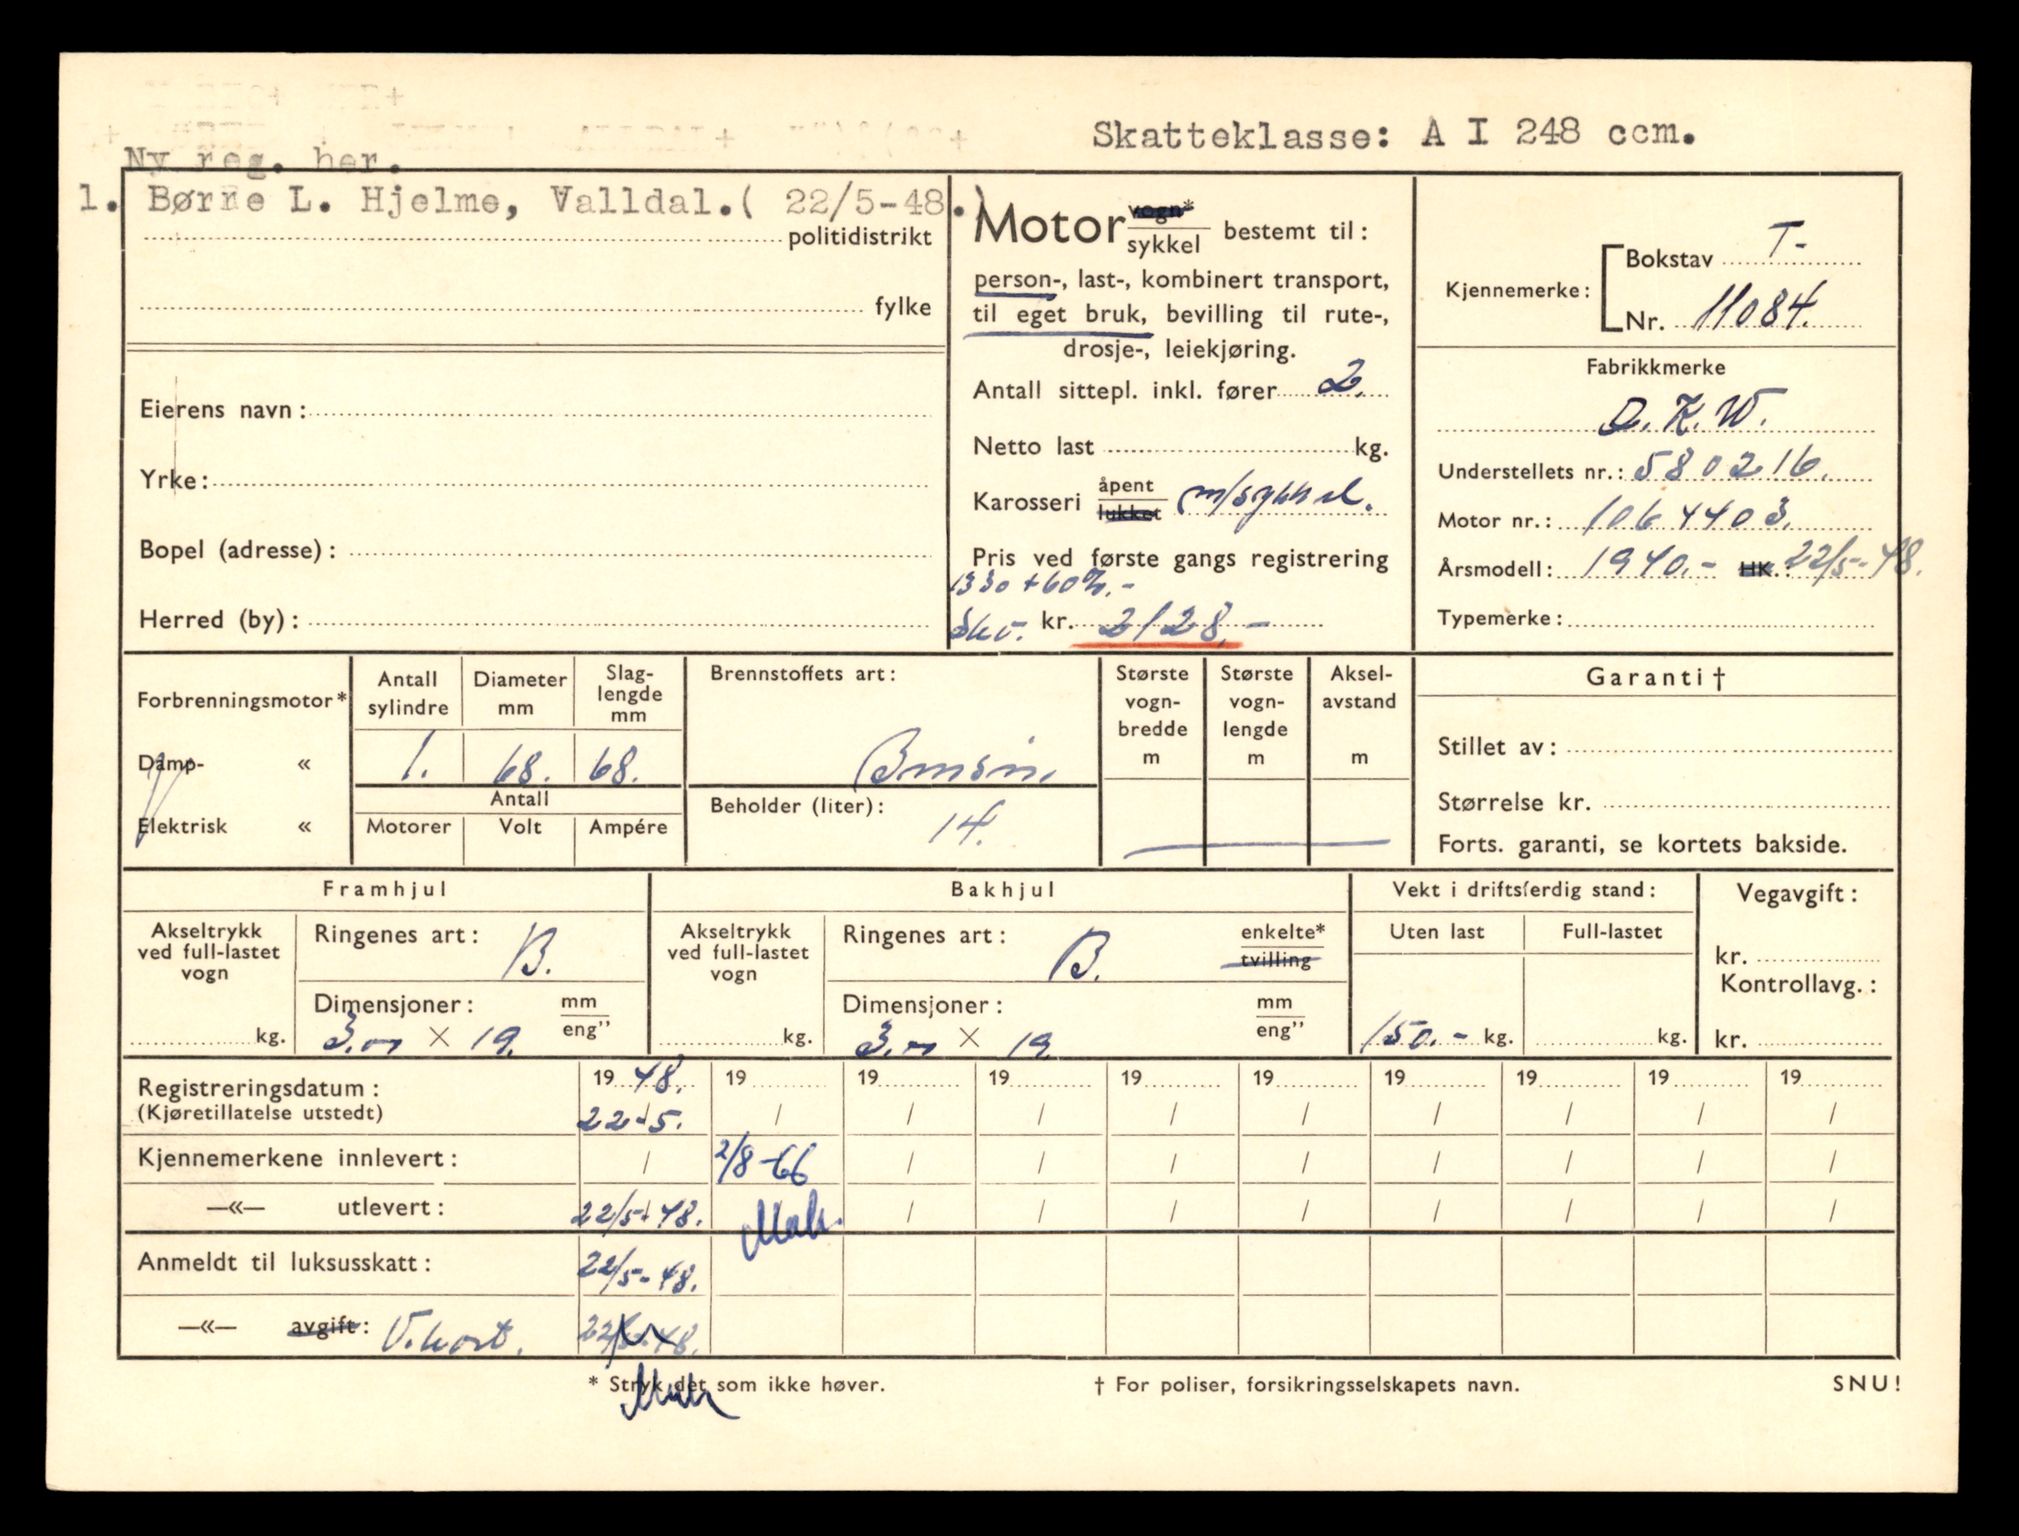 Skatteklasse: A I 248 ccm.
Ny reg. her.
1. Børre L. Hjelme, Valldal.( 22/5-48.)
politidistrikt
fylke
Eierens navn:
Yrke:
Bopel (adresse):
Herred (by):
Motor vogn* sykkel bestemt til:
person-, last-, kombinert transport,
til eget bruk, bevilling til rute-,
drosje-, leiekjøring.
Antall sittepl. inkl. fører 2.
Netto last kg.
Karosseri åpent lukket m/sykkel.
Pris ved første gangs registrering
1330 + 60%.-
kr. 2128.-
Kjennemerke: Bokstav T-
Nr. 11084.
Fabrikkmerke
D.K.W.
Understellets nr.: 580216.
Motor nr.: 1064403.
Årsmodell: 1940.- HK.: 22/5-48.
Typemerke:
Forbrenningsmotor*
Damp- «
Elektrisk «
Antall sylindre
1.
Diameter mm
68.
Slag-lengde mm
68.
Antall
Motorer Volt Ampére
Brennstoffets art:
Bensin.
Beholder (liter):
14.
Største vogn-bredde m
Største vogn-lengde m
Aksel-avstand m
Garanti †
Stillet av:
Størrelse kr.
Forts. garanti, se kortets bakside.
Framhjul
Akseltrykk ved full-lastet vogn
kg.
Ringenes art: B.
Dimensjoner: mm eng"
3.00 × 19.
Bakhjul
Akseltrykk ved full-lastet vogn
kg.
Ringenes art: B. enkelte* tvilling
Dimensjoner: mm eng"
3.00 × 19
Vekt i driftsferdig stand:
Uten last Full-lastet
150.- kg. kg.
Vegavgift:
kr.
Kontrollavg.:
kr.
Registreringsdatum: 19 48. 19 19 19 19 19 19 19 19 19
(Kjøretillatelse utstedt) 22/5. / / / / / / / / /
Kjennemerkene innlevert: / 2/8-66 / / / / / / / /
—«— utlevert: 22/5-48. / / / / / / / /
Anmeldt til luksusskatt: 22/5-48.
—«— avgift: V.kort. 22/5-48.
* Stryk det som ikke høver.
† For poliser, forsikringsselskapets navn.
SNU!